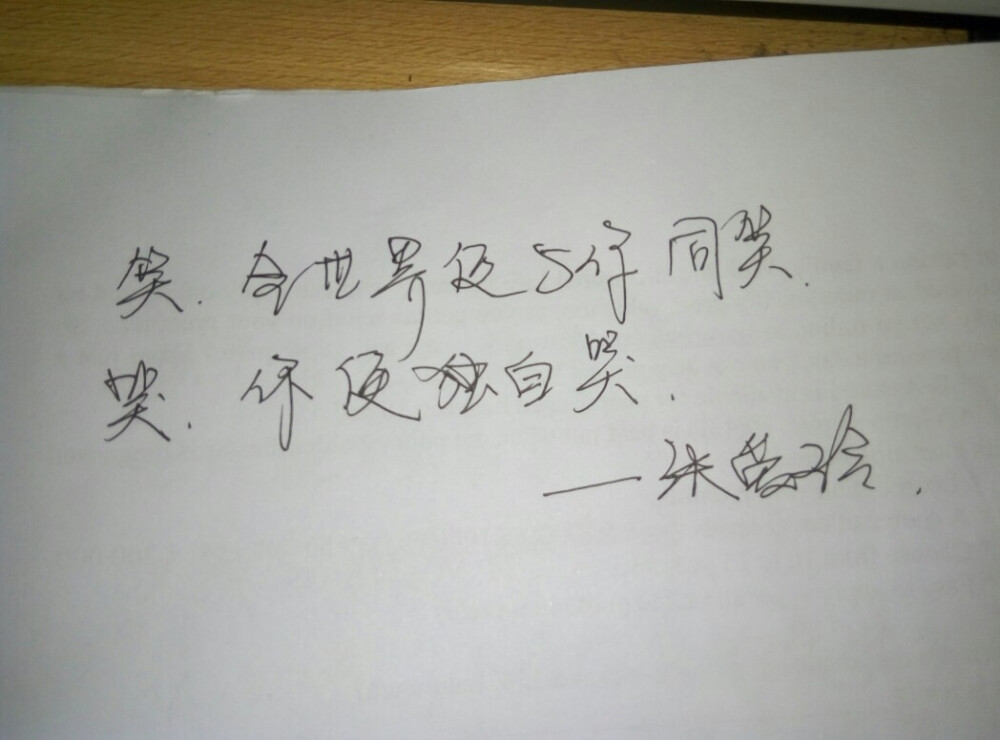 笑.全世界便与你同笑.
哭.你便独自哭.
—张爱玲.